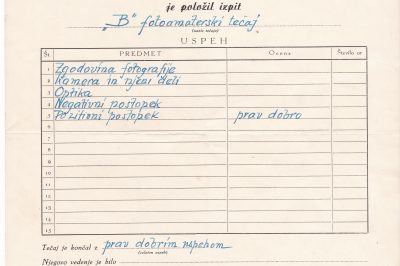 je položil izpit
„B" fotoamaterski tečaj
(naziv tečaja)
USPEH
Št. PREDMET Ocena Število ur
1 Zgodovina fotografije
2 Kamera in njeni deli
3 Optika
4 Negativni postopek
5 Pozitivni postopek prav dobro
6
7
8
9
10
11
12
13
14
15
Tečaj je končal z prav dobrim uspehom
(celoten uspeh)
Njegovo vedenje je bilo